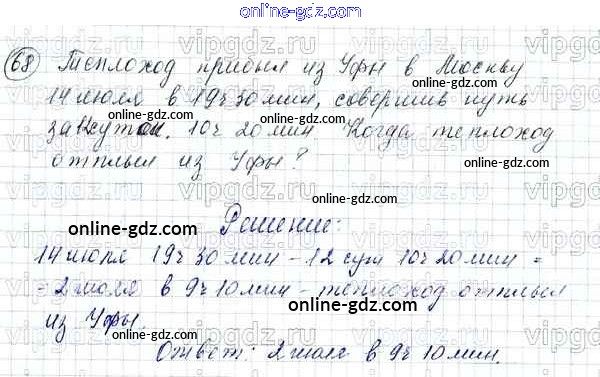 online-gdz.com
68 Теплоход прибыл из Уфы в Москву
14 июля в 19ч 30 мин, совершив путь
за 12 суток. 10ч 20 мин Когда теплоход
отплыл из Уфы?
Решение:
14 июля 19ч 30 мин - 12 сут 10ч 20 мин =
= 2 июля в 9ч 10 мин - теплоход отплыл
из Уфы.
Ответ: 2 июля в 9ч 10 мин.
vipgdz.com
online-gdz.com
online-gdz.com
online-gdz.com
online-gdz.com
online-gdz.com
online-gdz.com
online-gdz.com